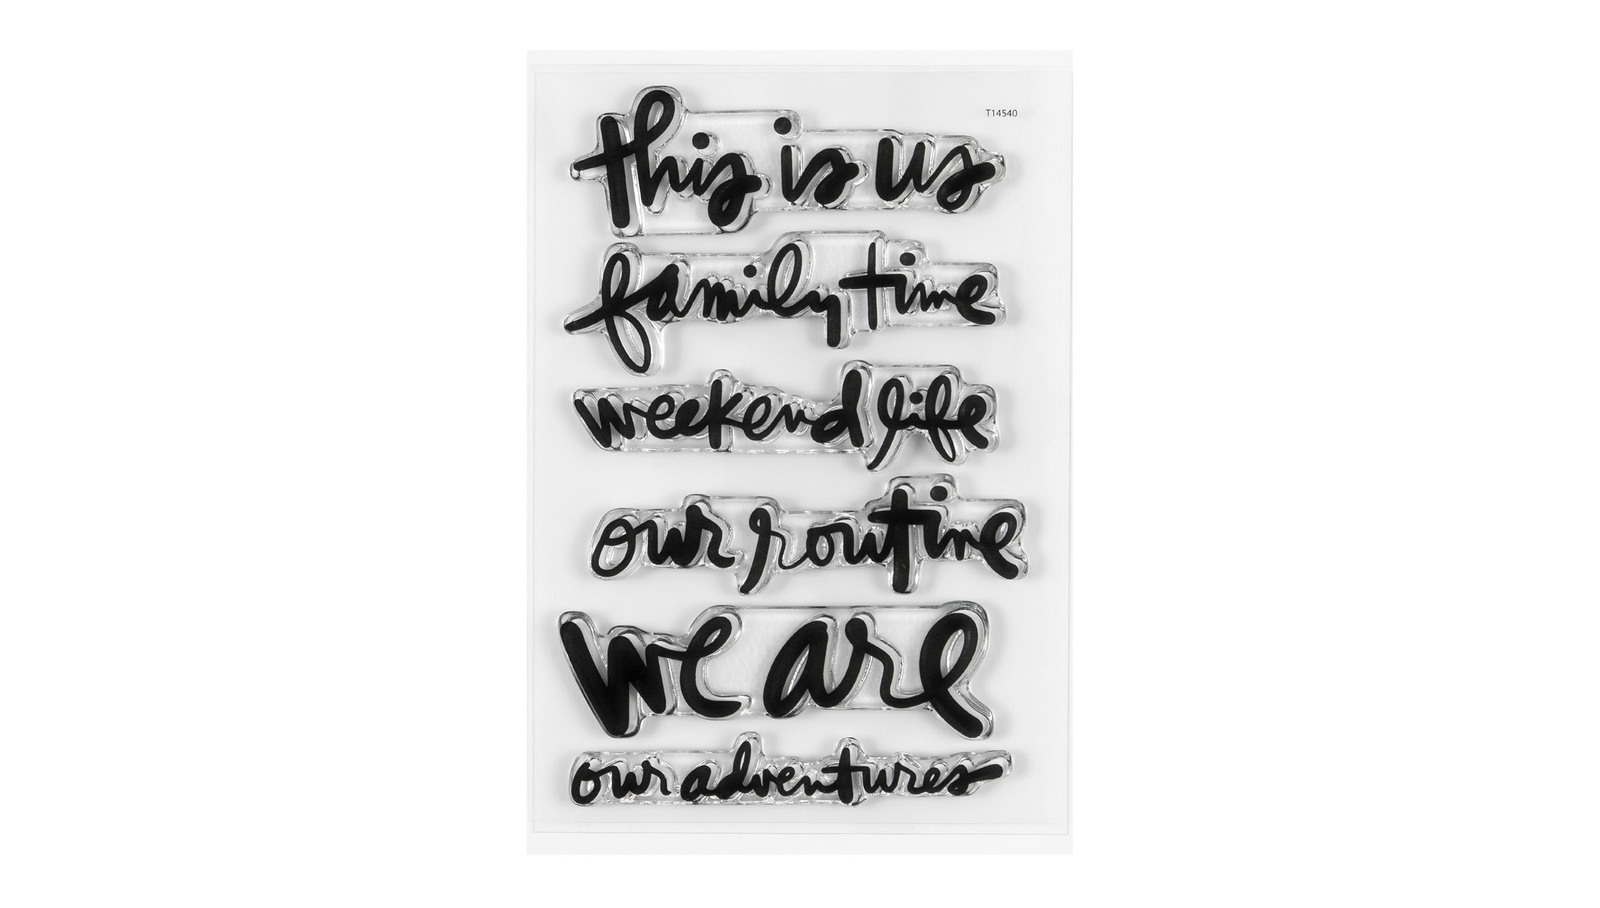 T14540
this is us
family time
weekend life
our routine
we are
our adventures